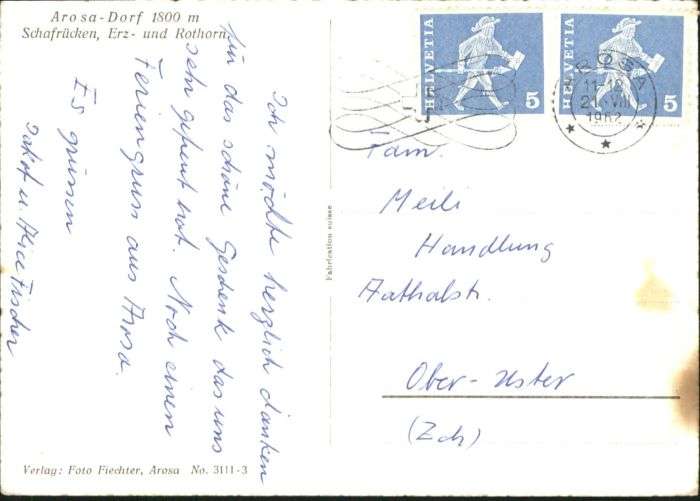 Arosa-Dorf 1800 m
Schafrücken, Erz- und Rothorn
Ich möchte herzlich danken
für das schöne Geschenk das uns
sehr gefreut hat. Noch einen
Feriengruss aus Arosa.
Es grüssen
Jakob u. Alice Fischer
Verlag: Foto Fiechter, Arosa No. 3111-3
Fabrication suisse
HELVETIA 5
HELVETIA 5
VIII
1962
Fam.
Meili
Handlung
Aathalstr.
Ober-Uster
(Zch)